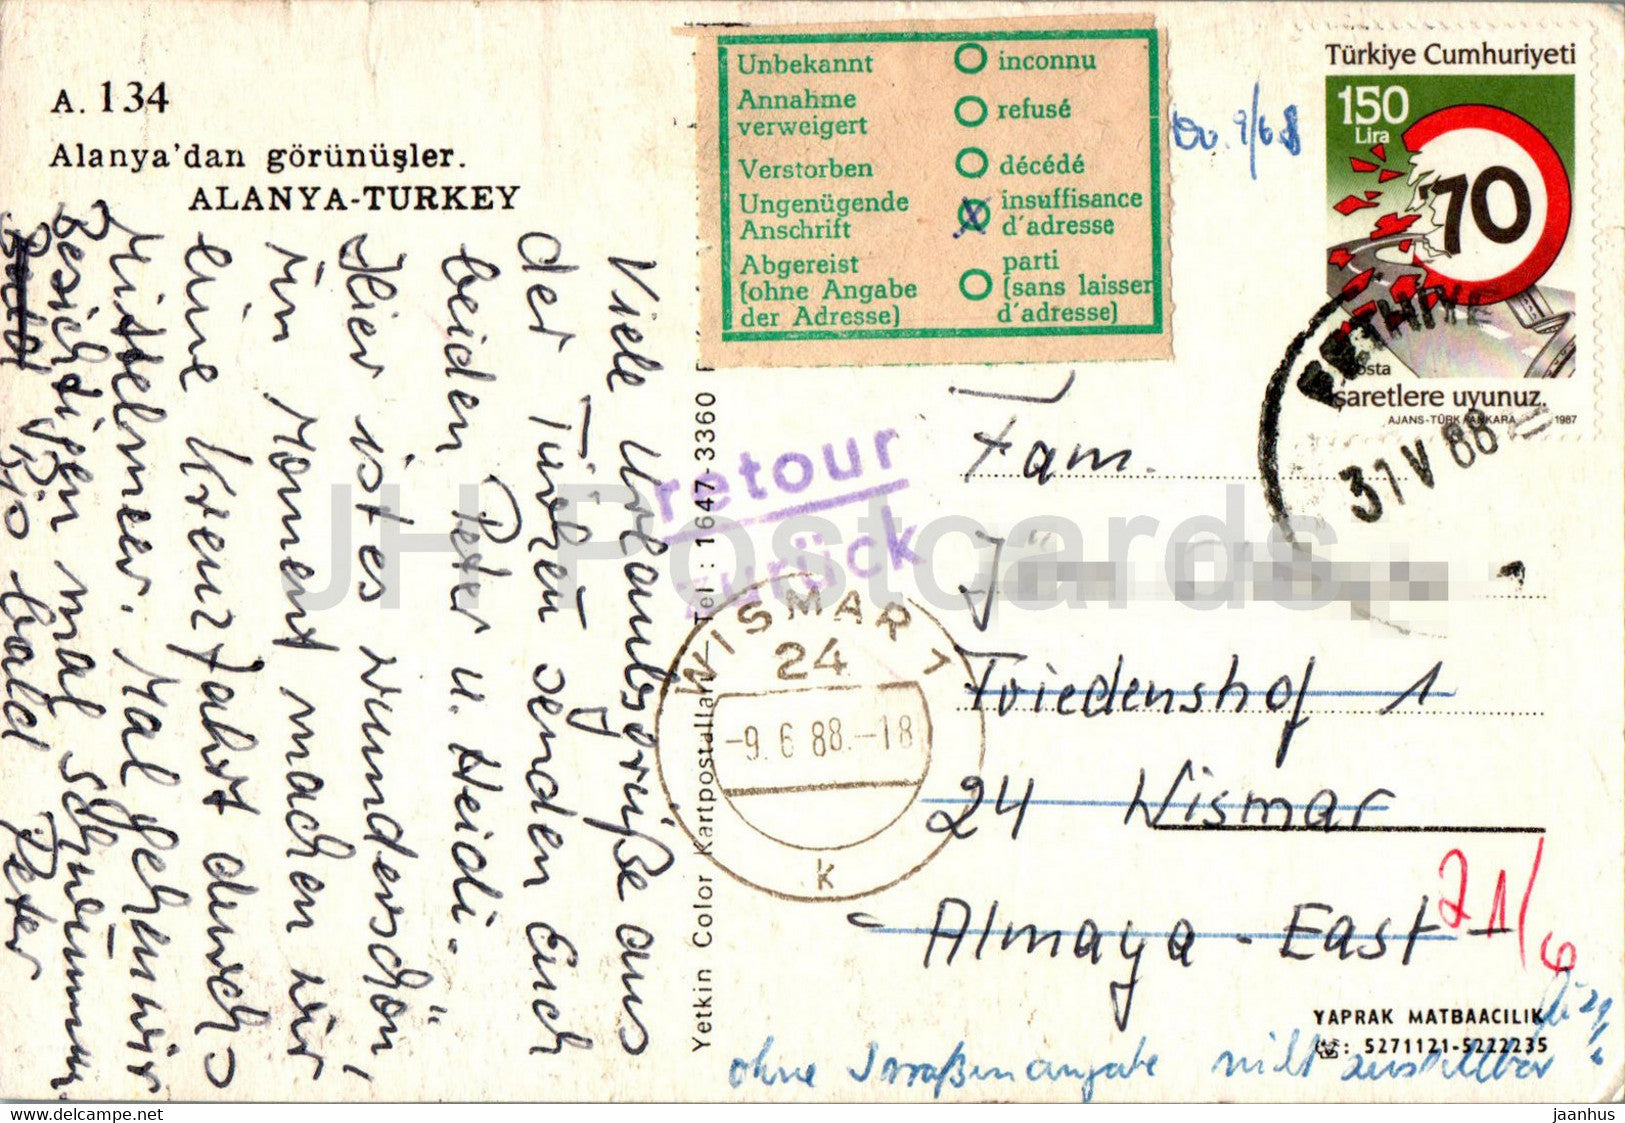 A. 134
Alanya'dan görünüşler.
ALANYA-TURKEY
Viele Urlaubsgrüße aus
der Türkei senden Euch
beiden Peter u. Heidi.
Hier ist es wunderschön,
im Moment machen wir
eine Kreuzfahrt durchs
Mittelmeer. Mal gehen wir
Besichtigen mal schwimmen
Bis bald Peter
Yetkin Color Kartpostalları — Tel : 1647-3360
Unbekannt inconnu
Annahme verweigert refusé
Verstorben décédé
Ungenügende Anschrift insuffisance d'adresse
Abgereist (ohne Angabe der Adresse) parti (sans laisser d'adresse)
9/6
Türkiye Cumhuriyeti
150
Lira
70
Posta
işaretlere uyunuz.
AJANS-TÜRK/ANKARA 1987
FETHİYE
31 V 88
retour
zurück
WISMAR 1
24
-9.6.88.-18
k
Fam.
Friedenshof 1
24 Wismar
Almaya - East
21/6
YAPRAK MATBAACILIK
: 5271121-5222235
ohne Straßenangabe nicht zustellbar
JH Postcards
https://www.delcampe.net
jaanhus